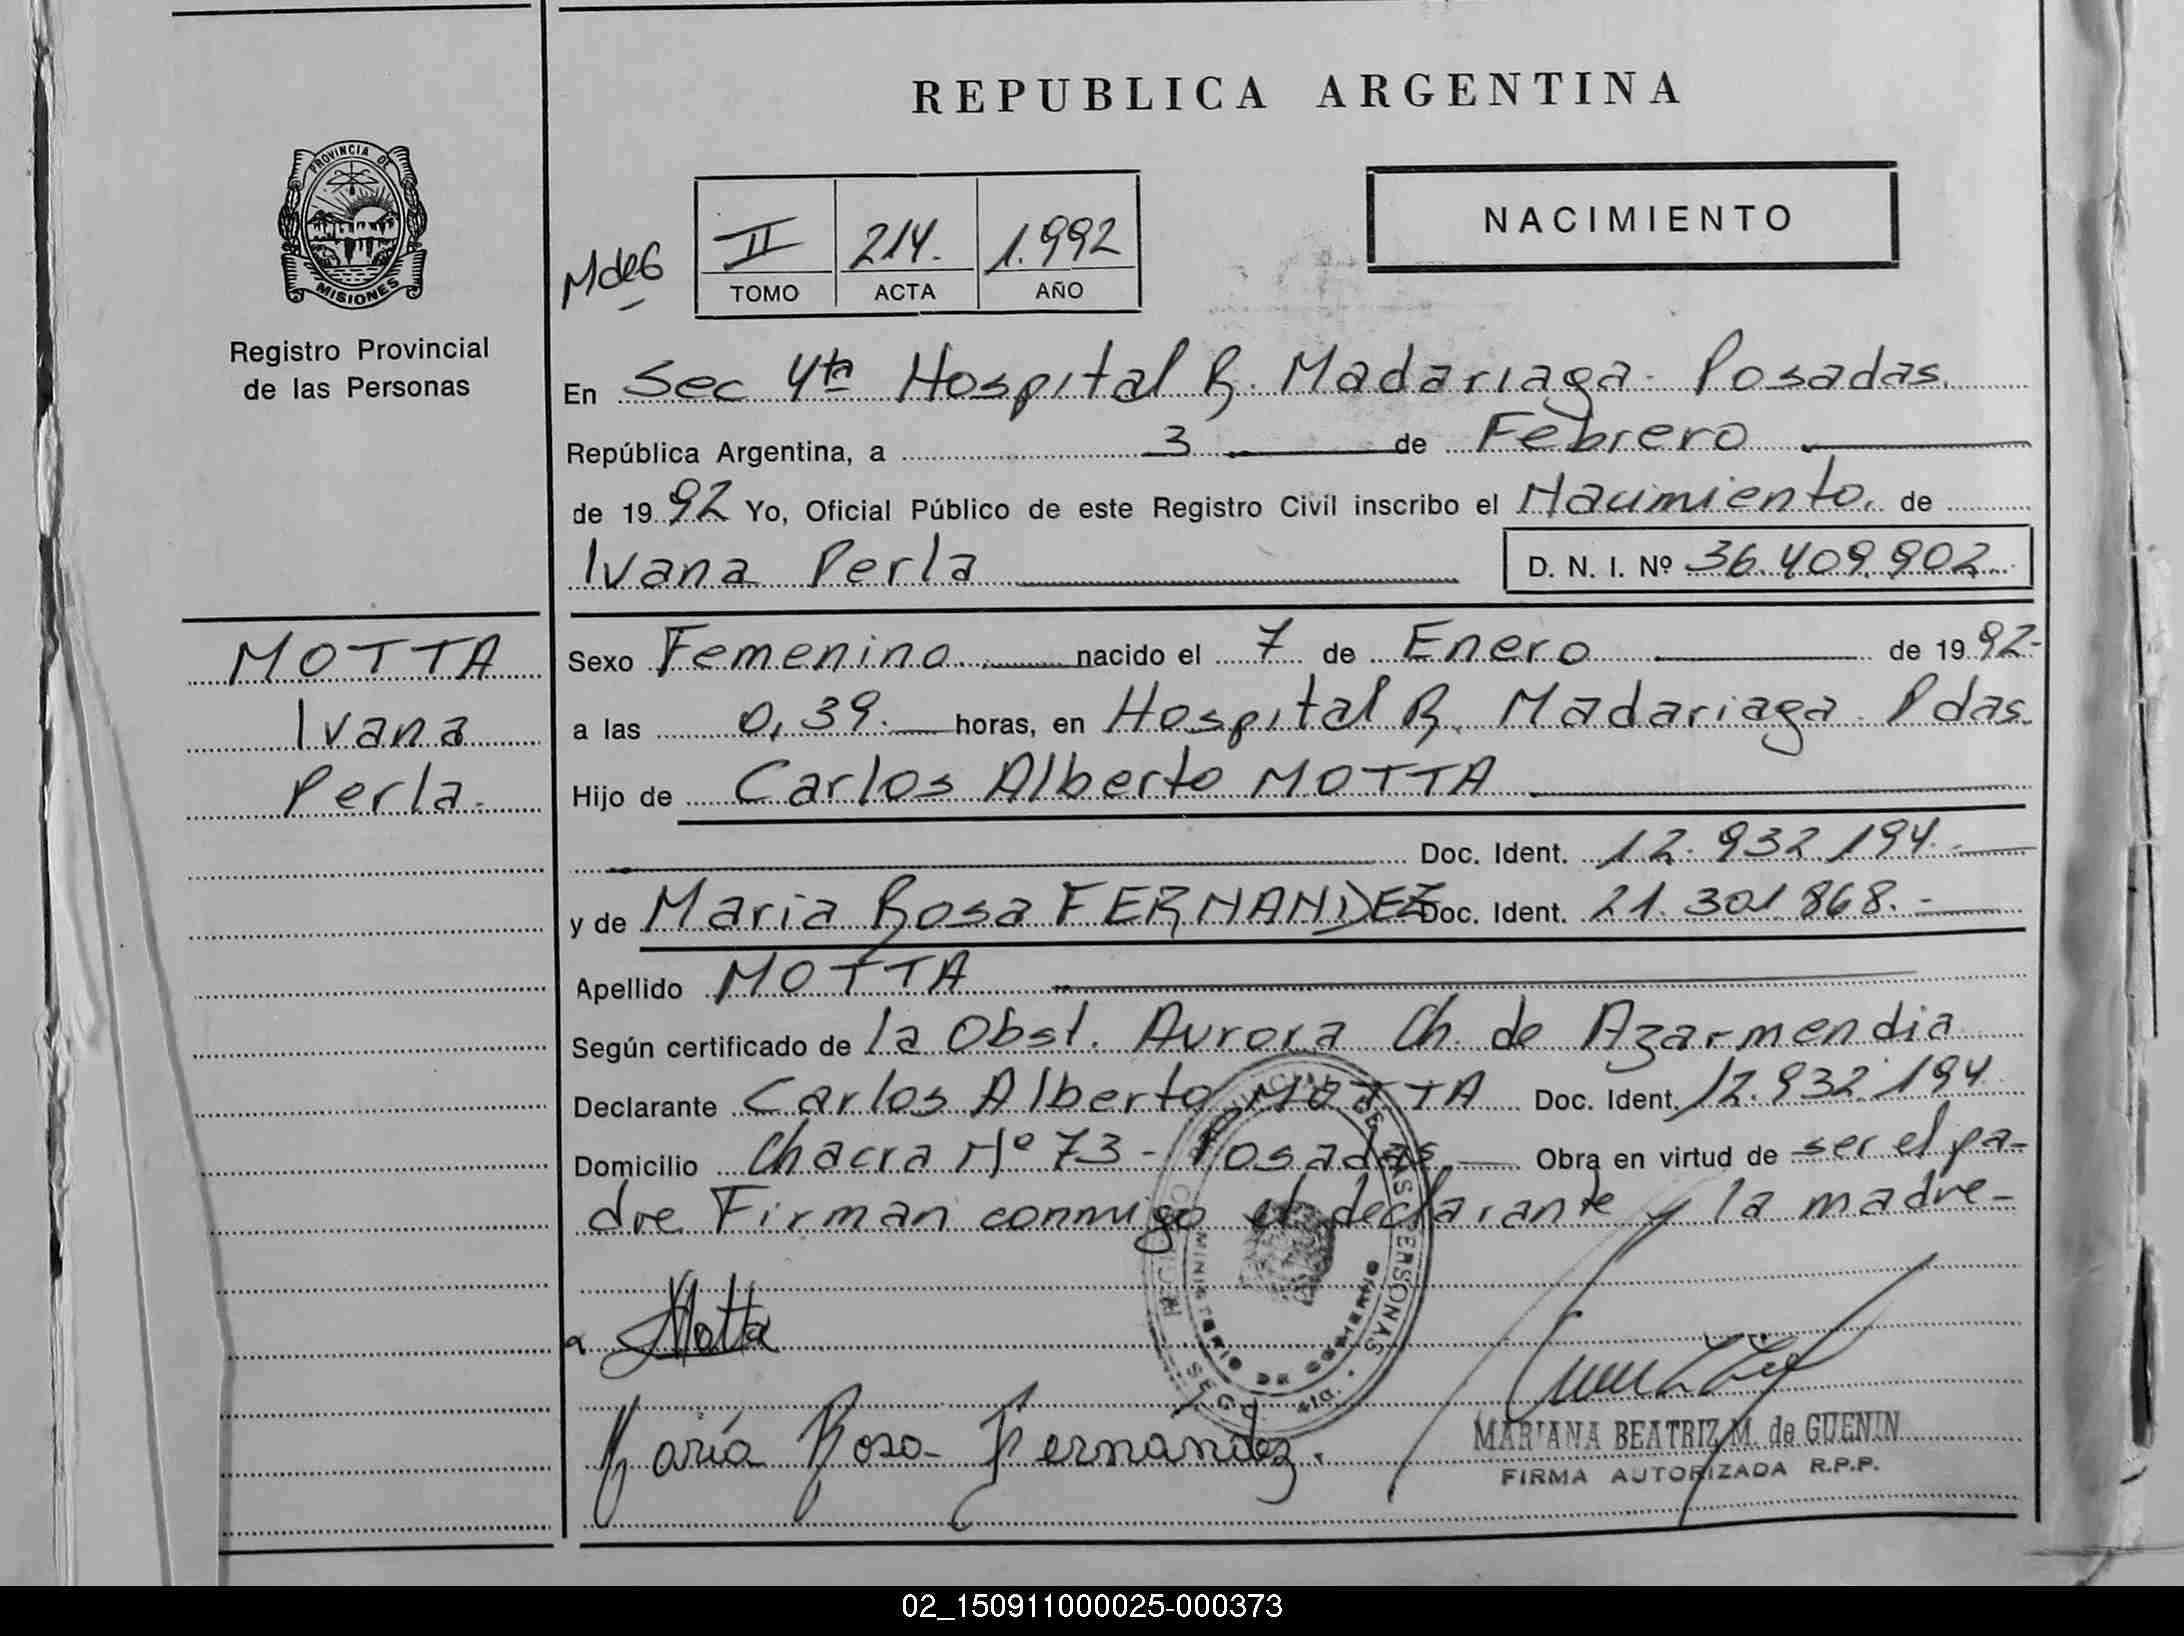 REPUBLICA ARGENTINA
PROVINCIA DE
MISIONES
Registro Provincial
de las Personas
NACIMIENTO
MdeG
II 214. 1.992
TOMO ACTA AÑO
En Sec 4ta Hospital R. Madariaga - Posadas.
República Argentina, a 3 de Febrero
de 1992 Yo, Oficial Público de este Registro Civil inscribo el Nacimiento. de
Ivana Perla D. N. I. Nº 36.409.902
MOTTA
Ivana
Perla.
Sexo Femenino nacido el 7 de Enero de 1992-
a las 0,39. horas, en Hospital R. Madariaga - Pdas.
Hijo de Carlos Alberto MOTTA
Doc. Ident. 12.932.194.
y de Maria Rosa FERNANDEZ Doc. Ident. 21.301.868.-
Apellido MOTTA
Según certificado de la Obst. Aurora Ch. de Azarmendia
Declarante Carlos Alberto MOTTA Doc. Ident. 12.932.194
Domicilio Chacra Nº 73 - Posadas Obra en virtud de ser el pa-
dre Firman conmigo el declarante y la madre-
Motta
María Rosa Fernandez.
MARIANA BEATRIZ M. de GUENIN
FIRMA AUTORIZADA R.P.P.
02_150911000025-000373